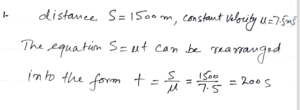 1. distance S = 1500 m, constant velocity u = 7.5 m/s
The equation S = ut can be rearranged
into the form t = S/u = 1500/7.5 = 200 s